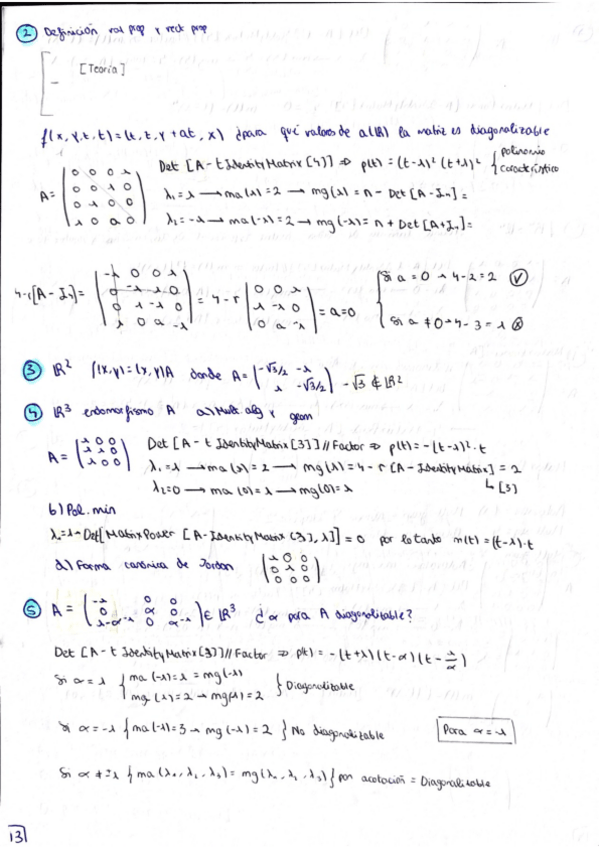 ② Definición val prop y vect prop
[Teoría]
f(x, y, z, t) = (t, z, y + az, x) ¿para qué valores de a(ℝ) la matriz es diagonalizable
A = (0 0 0 1; 0 0 1 0; 0 1 a 0; 1 0 0 0) Det [A - t IdentityMatrix [4]] ⇒ p(t) = (t-1)² (t+1)² { polinomio característico
λ₁ = 1 → ma (1) = 2 → mg (1) = n - Det [A - I₄] =
λ₂ = -1 → ma (-1) = 2 → mg (-1) = n + Det [A + I₄] =
4-r[A - I₄] = |-1 0 0 1; 0 -1 1 0; 0 1 -1 0; 1 0 a -1| = 4 - r |0 0 1; 1 -1 0; 0 a -1| = a = 0 { Si a = 0 → 4 - 2 = 2 ✓
Si a ≠ 0 → 4 - 3 = 1 ⊗
③ ℝ² f(x, y) = (x, y) A donde A = (-√3/2 -1; 1 -√3/2) - √3 ∉ ℝ²
④ ℝ³ endomorfismo A a) Mult alg y geom
A = (1 0 0; 1 1 0; 1 0 0) Det [A - t IdentityMatrix [3]] // Factor ⇒ p(t) = -(t-1)² · t
λ₁ = 1 → ma (1) = 2 → mg (1) = 4 - r [A - IdentityMatrix] = 2
↳ [3]
λ₂ = 0 → ma (0) = 1 → mg (0) = 1
b) Pol. min
λ = 1 → Det [MatrixPower [A - IdentityMatrix [3], 1]] = 0 por lo tanto m(t) = (t-1) · t
d) Forma canónica de Jordan (1 0 0; 0 1 0; 0 0 0)
⑤ A = (-1 0 0; 0 α 0; 1-α⁻¹ 0 α⁻¹) ∈ ℝ³ ¿ α para A diagonalizable?
Det [A - t IdentityMatrix [3]] // Factor ⇒ p(t) = -(t+1)(t-α)(t-1/α)
Si α = 1 { ma (-1) = 1 = mg (-1)
mg (1) = 2 → mg (1) = 2 } Diagonalizable
Si α = -1 { ma (-1) = 3 → mg (-1) = 2 } No diagonalizable Para α = -1
Si α ≠ ±1 { ma (λ₁, λ₂, λ₃) = mg (λ₁, λ₂, λ₃) } por acotación = Diagonalizable
13